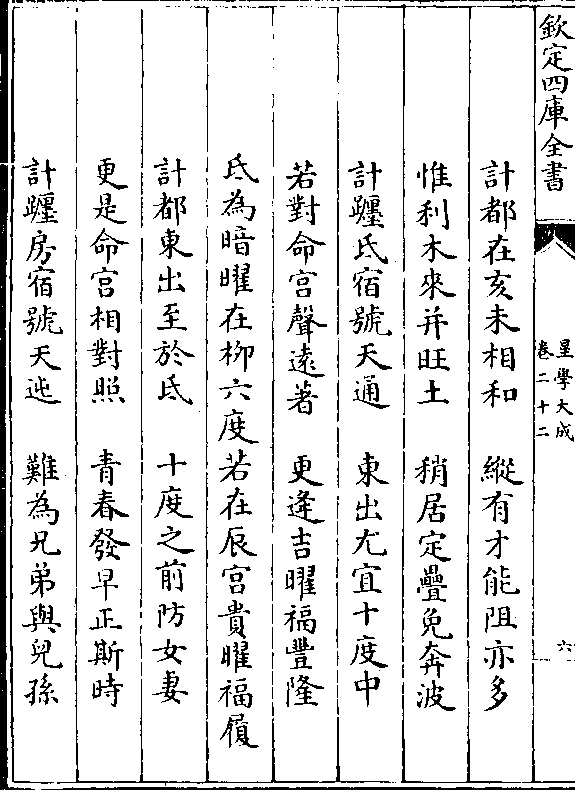 欽定四庫全書
星學大成
卷二十二
六
計都在亥未相和　縱有才能阻亦多
惟利木來并旺土　稍居定疊免奔波
計躔氐宿號天通　東出尤宜十度中
若對命宫聲遠著　更逢吉曜福豐隆
氐為暗曜在柳六度若在辰宫貴曜福履
計都東出至於氐　十度之前防女妻
更是命宫相對照　青春發早正斯時
計躔房宿號天迍　難為兄弟與兒孫